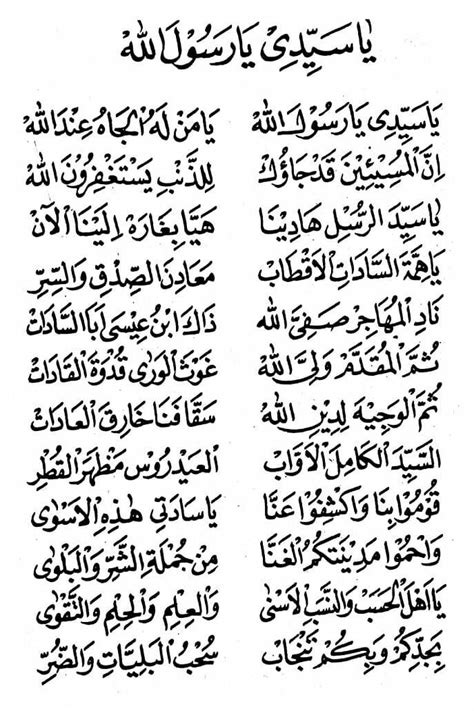 يَا سَيِّدِيْ يَا رَسُوْلَ اللهْ
يَا سَيِّدِى يَا رَسُوْلَ اللهْ يَا مَنْ لَهُ الْجَاهُ عِنْدَ اللهْ
اِنَّ الْمُسِيْئِيْنَ قَدْ جَاؤُكْ لِلذَّنْبِ يَسْتَغْفِرُوْنَ اللهْ
يَا سَيِّدَ الرُّسْلِ هَادِيْنَا هَيَّا بِغَارَهْ اِلَيْنَا الْآنْ
يَا هِمَّةَ السَّادَاتِ الْاَقْطَابْ مَعَادِنَ الصِّدْقِ وَالسِّرِّ
نَادِ الْمُهَاجِرْ صَفِيَّ اللهْ ذَاكَ ابْنُ عِيْسَى اَبَا السَّادَاتْ
ثُمَّ الْمُقَدَّمْ وَلِيَّ اللهْ غَوْثَ الْوَرٰى قُدْوَةَ الْقَادَاتْ
ثُمَّ الْوَجِيْهَ لِدِيْنِ اللهْ سَقَّافَنَا خَارِقَ الْعَادَاتْ
السَّيِّدَ الْكَامِلَ الْاَوَّابْ الْعَيْدَرُوْسْ مَظْهَرَ الْقُطْرِ
قُوْمُوْا بِنَا وَاكْشِفُوْا عَنَّا يَا سَادَتِيْ هٰذِهِ الْاَسْوٰى
وَاحْمُوْا مَدِيْنَتَكُمُ الْغَنَّا مِنْ جُمْلَةِ الشَّرِّ وَالْبَلْوٰى
يَا اَهْلَ الْحَسَبْ وَالنَّسَبْ الْاَسْنٰى وَالْعِلْمِ وَالْحِلْمِ وَالتَّقْوٰى
بِجَدِّكُمْ وَبِكُمْ تَنْجَابْ سُحْبُ الْبَلِيَّاتِ وَالضُّرِّ